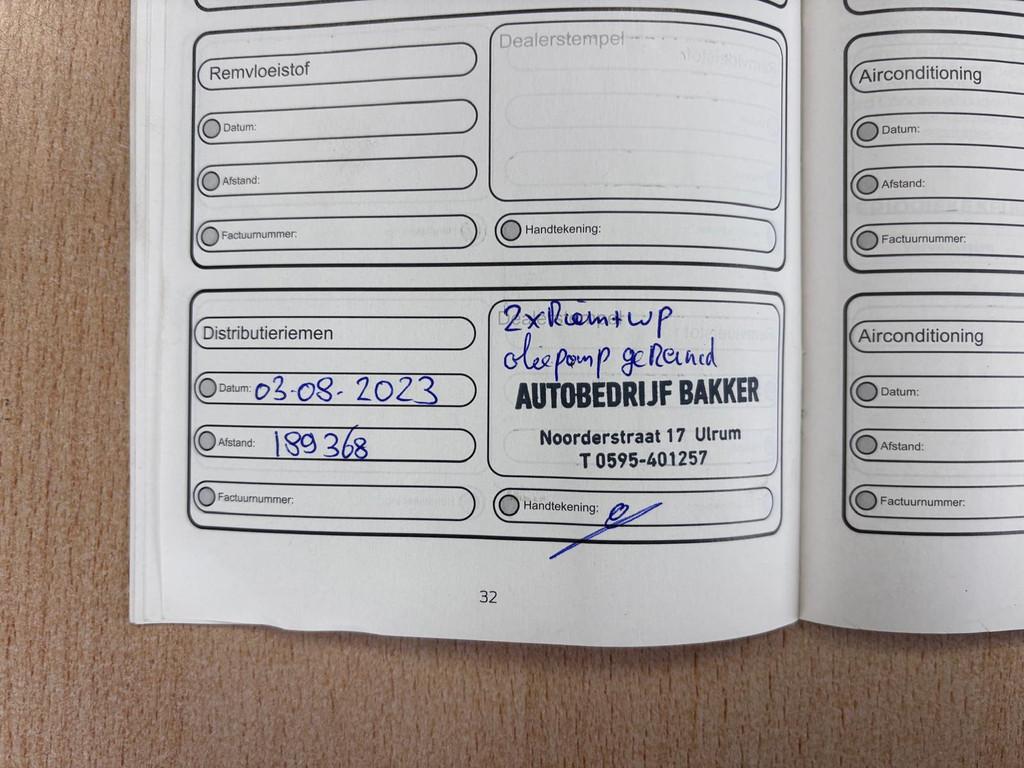 Remvloeistof
Datum:
Afstand:
Factuurnummer:
Dealerstempel
Handtekening:
Distributieriemen
Datum: 03-08-2023
Afstand: 189368
Factuurnummer:
2x Riem + WP
oliepomp gereinid
AUTOBEDRIJF BAKKER
Noorderstraat 17 Ulrum
T 0595-401257
Handtekening:
32
Airconditioning
Datum:
Afstand:
Factuurnummer:
Airconditioning
Datum:
Afstand:
Factuurnummer: